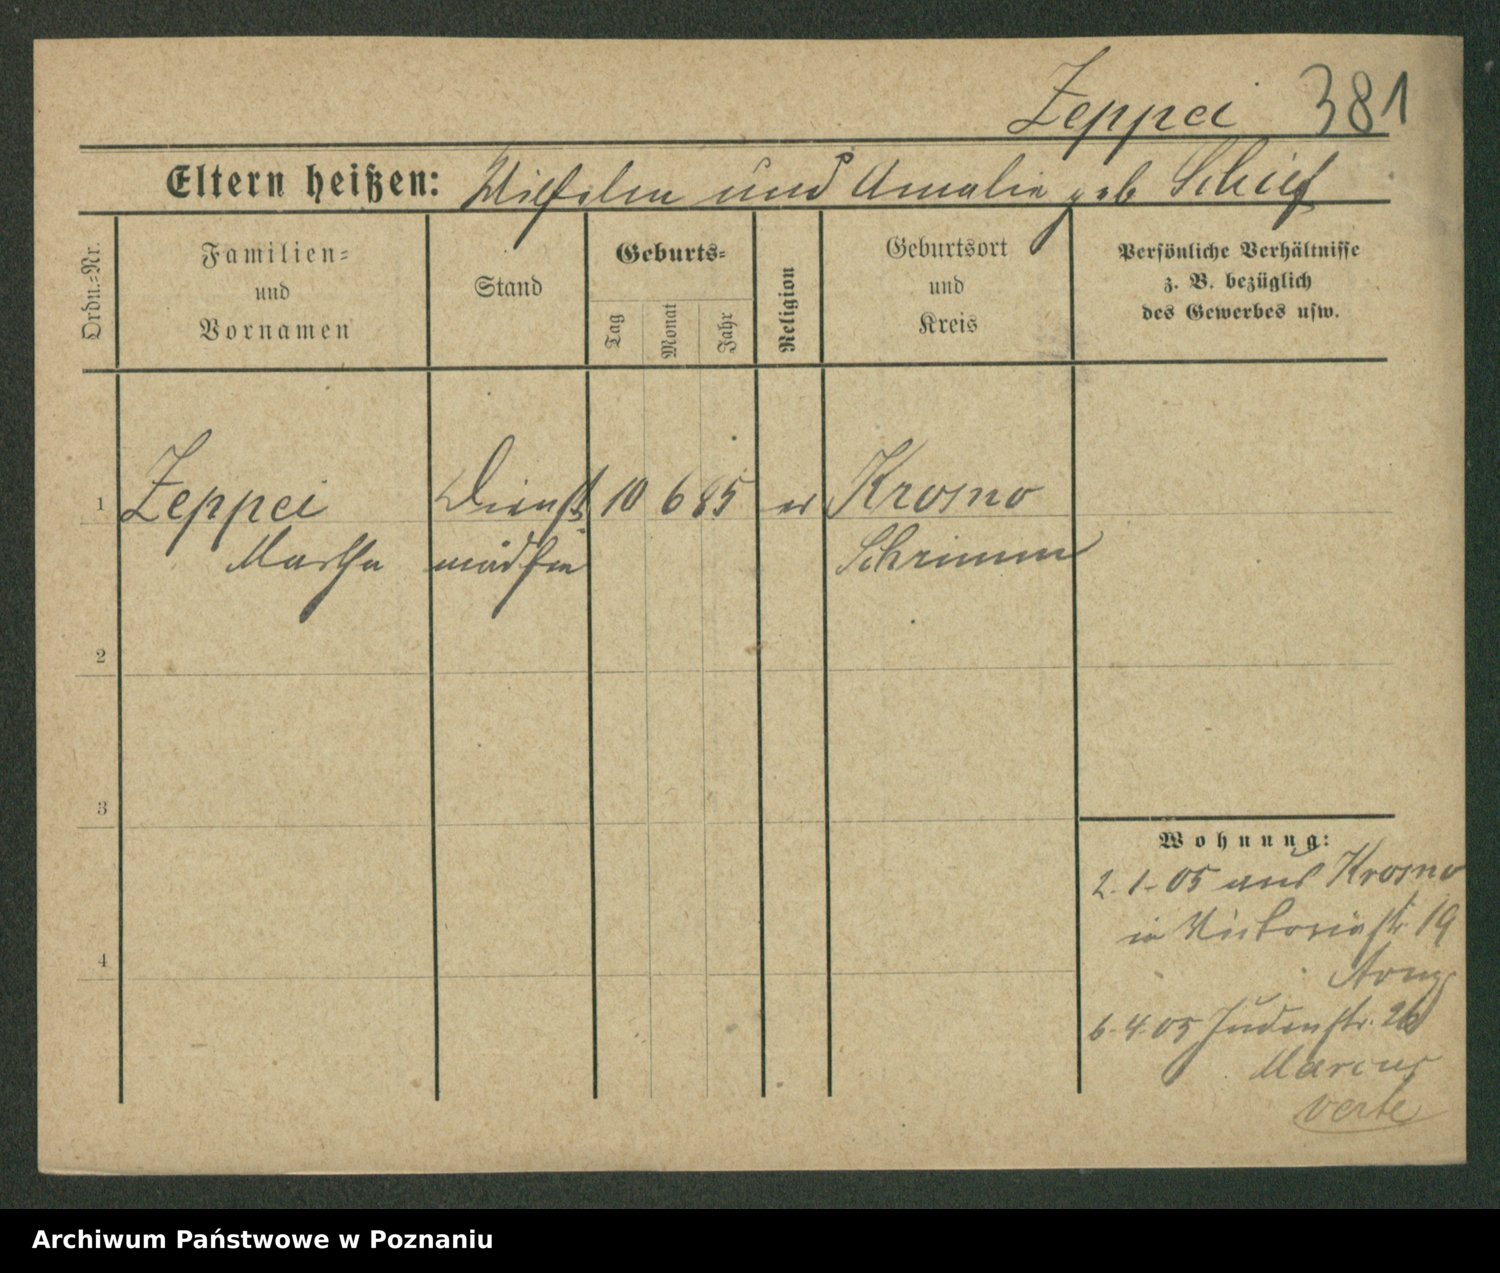 Zeppei 381
Eltern heißen: Wilhelm und Amalie geb Schief
Ordn.=Nr.
Familien=
und
Vornamen
Stand
Geburts=
Tag
Monat
Jahr
Religion
Geburtsort
und
Kreis
Persönliche Verhältnisse
z. B. bezüglich
des Gewerbes usw.
1 Zeppei Dienst 10 6 85 ev Krosno
Martha mädchen Schrimm
2
3
4
Wohnung:
2.1.05 aus Krosno
in Victoriastr. 19
6.4.05 Judenstr. 26
Marcus
verte
Archiwum Państwowe w Poznaniu